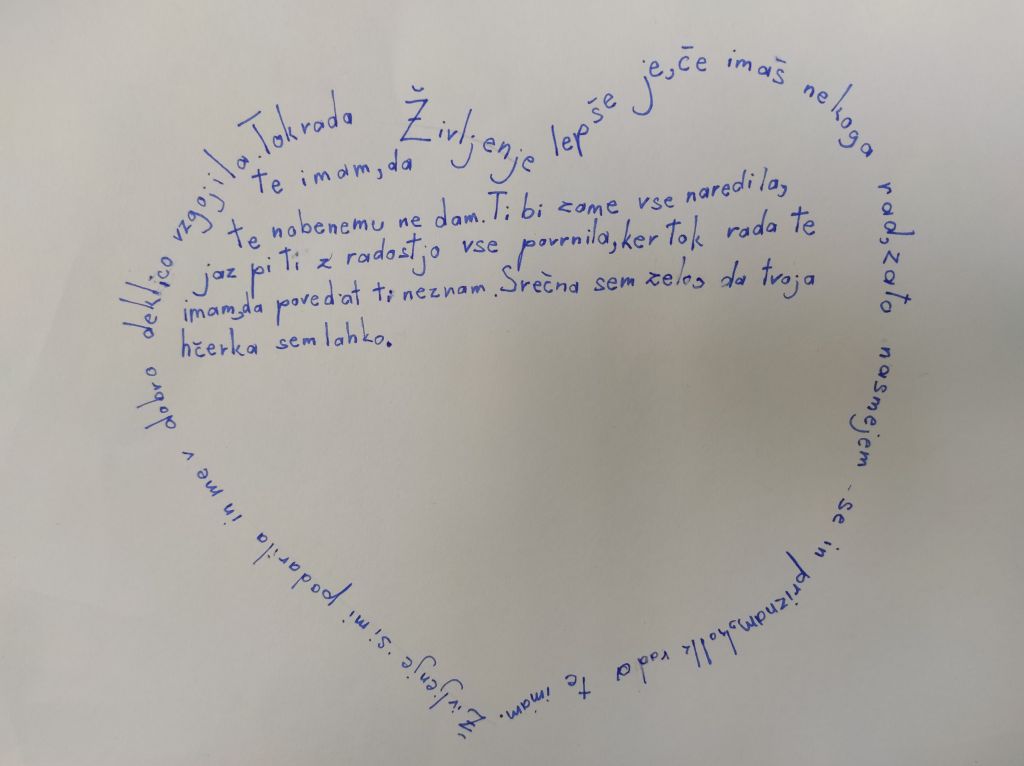 Življenje lepše je, če imaš nekoga rad, zato nasmejem se in priznam, kolk rada te imam.
Življenje si mi podarila in me v dobro deklico vzgojila. Tok rada
te imam, da
te nobenemu ne dam. Ti bi zame vse naredila,
jaz pi ti z radostjo vse povrnila, ker tok rada te
imam, da povedat ti neznam. Srečna sem zelo, da tvoja
hčerka sem lahko.